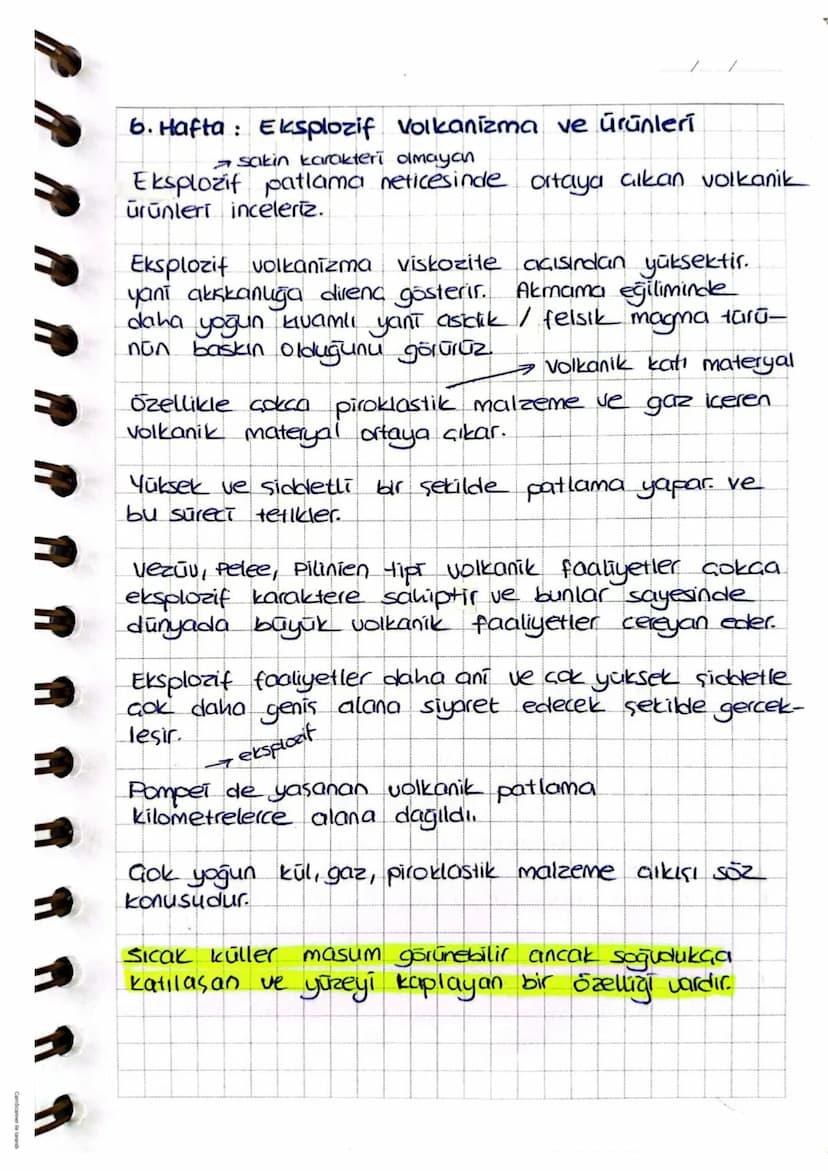 6. Hafta : Eksplozif Volkanizma ve ürünleri
→ sakin karakteri olmayan
Eksplozif patlama neticesinde ortaya çıkan volkanik
ürünleri inceleriz.
Eksplozif volkanizma viskozite açısından yüksektir.
yani akışkanlığa direnç gösterir. Akmama eğiliminde
daha yoğun kıvamlı yani asidik / felsik magma türü-
nün baskın olduğunu görürüz.
→ volkanik katı materyal
Özellikle çokça piroklastik malzeme ve gaz içeren
volkanik materyal ortaya çıkar.
Yüksek ve şiddetli bir şekilde patlama yapar ve
bu süreci tetikler.
Vezüv, Pelee, Pilinien tipi volkanik faaliyetler çokça
eksplozif karaktere sahiptir ve bunlar sayesinde
dünyada büyük volkanik faaliyetler cereyan eder.
Eksplozif faaliyetler daha ani ve çok yüksek şiddetle
çok daha geniş alana siyaret edecek şekilde gerçek-
leşir.
→ eksplozif
Pompei de yaşanan volkanik patlama
kilometrelerce alana dağıldı.
Çok yoğun kül, gaz, piroklastik malzeme çıkışı söz
konusudur.
Sıcak küller masum görünebilir ancak soğudukça
katılaşan ve yüzeyi kaplayan bir özelliği vardır.